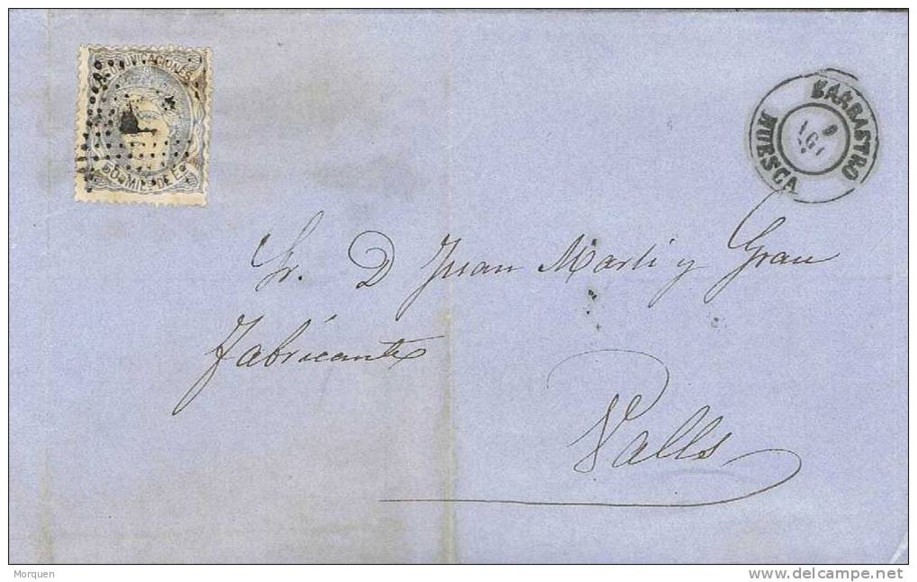 COMUNICACIONES
50 MILS DE E
BARBASTRO
AGO
HUESCA
Sr. D Juan Marti y Grau
Fabricante
Valls
Morquen
delcampe.net